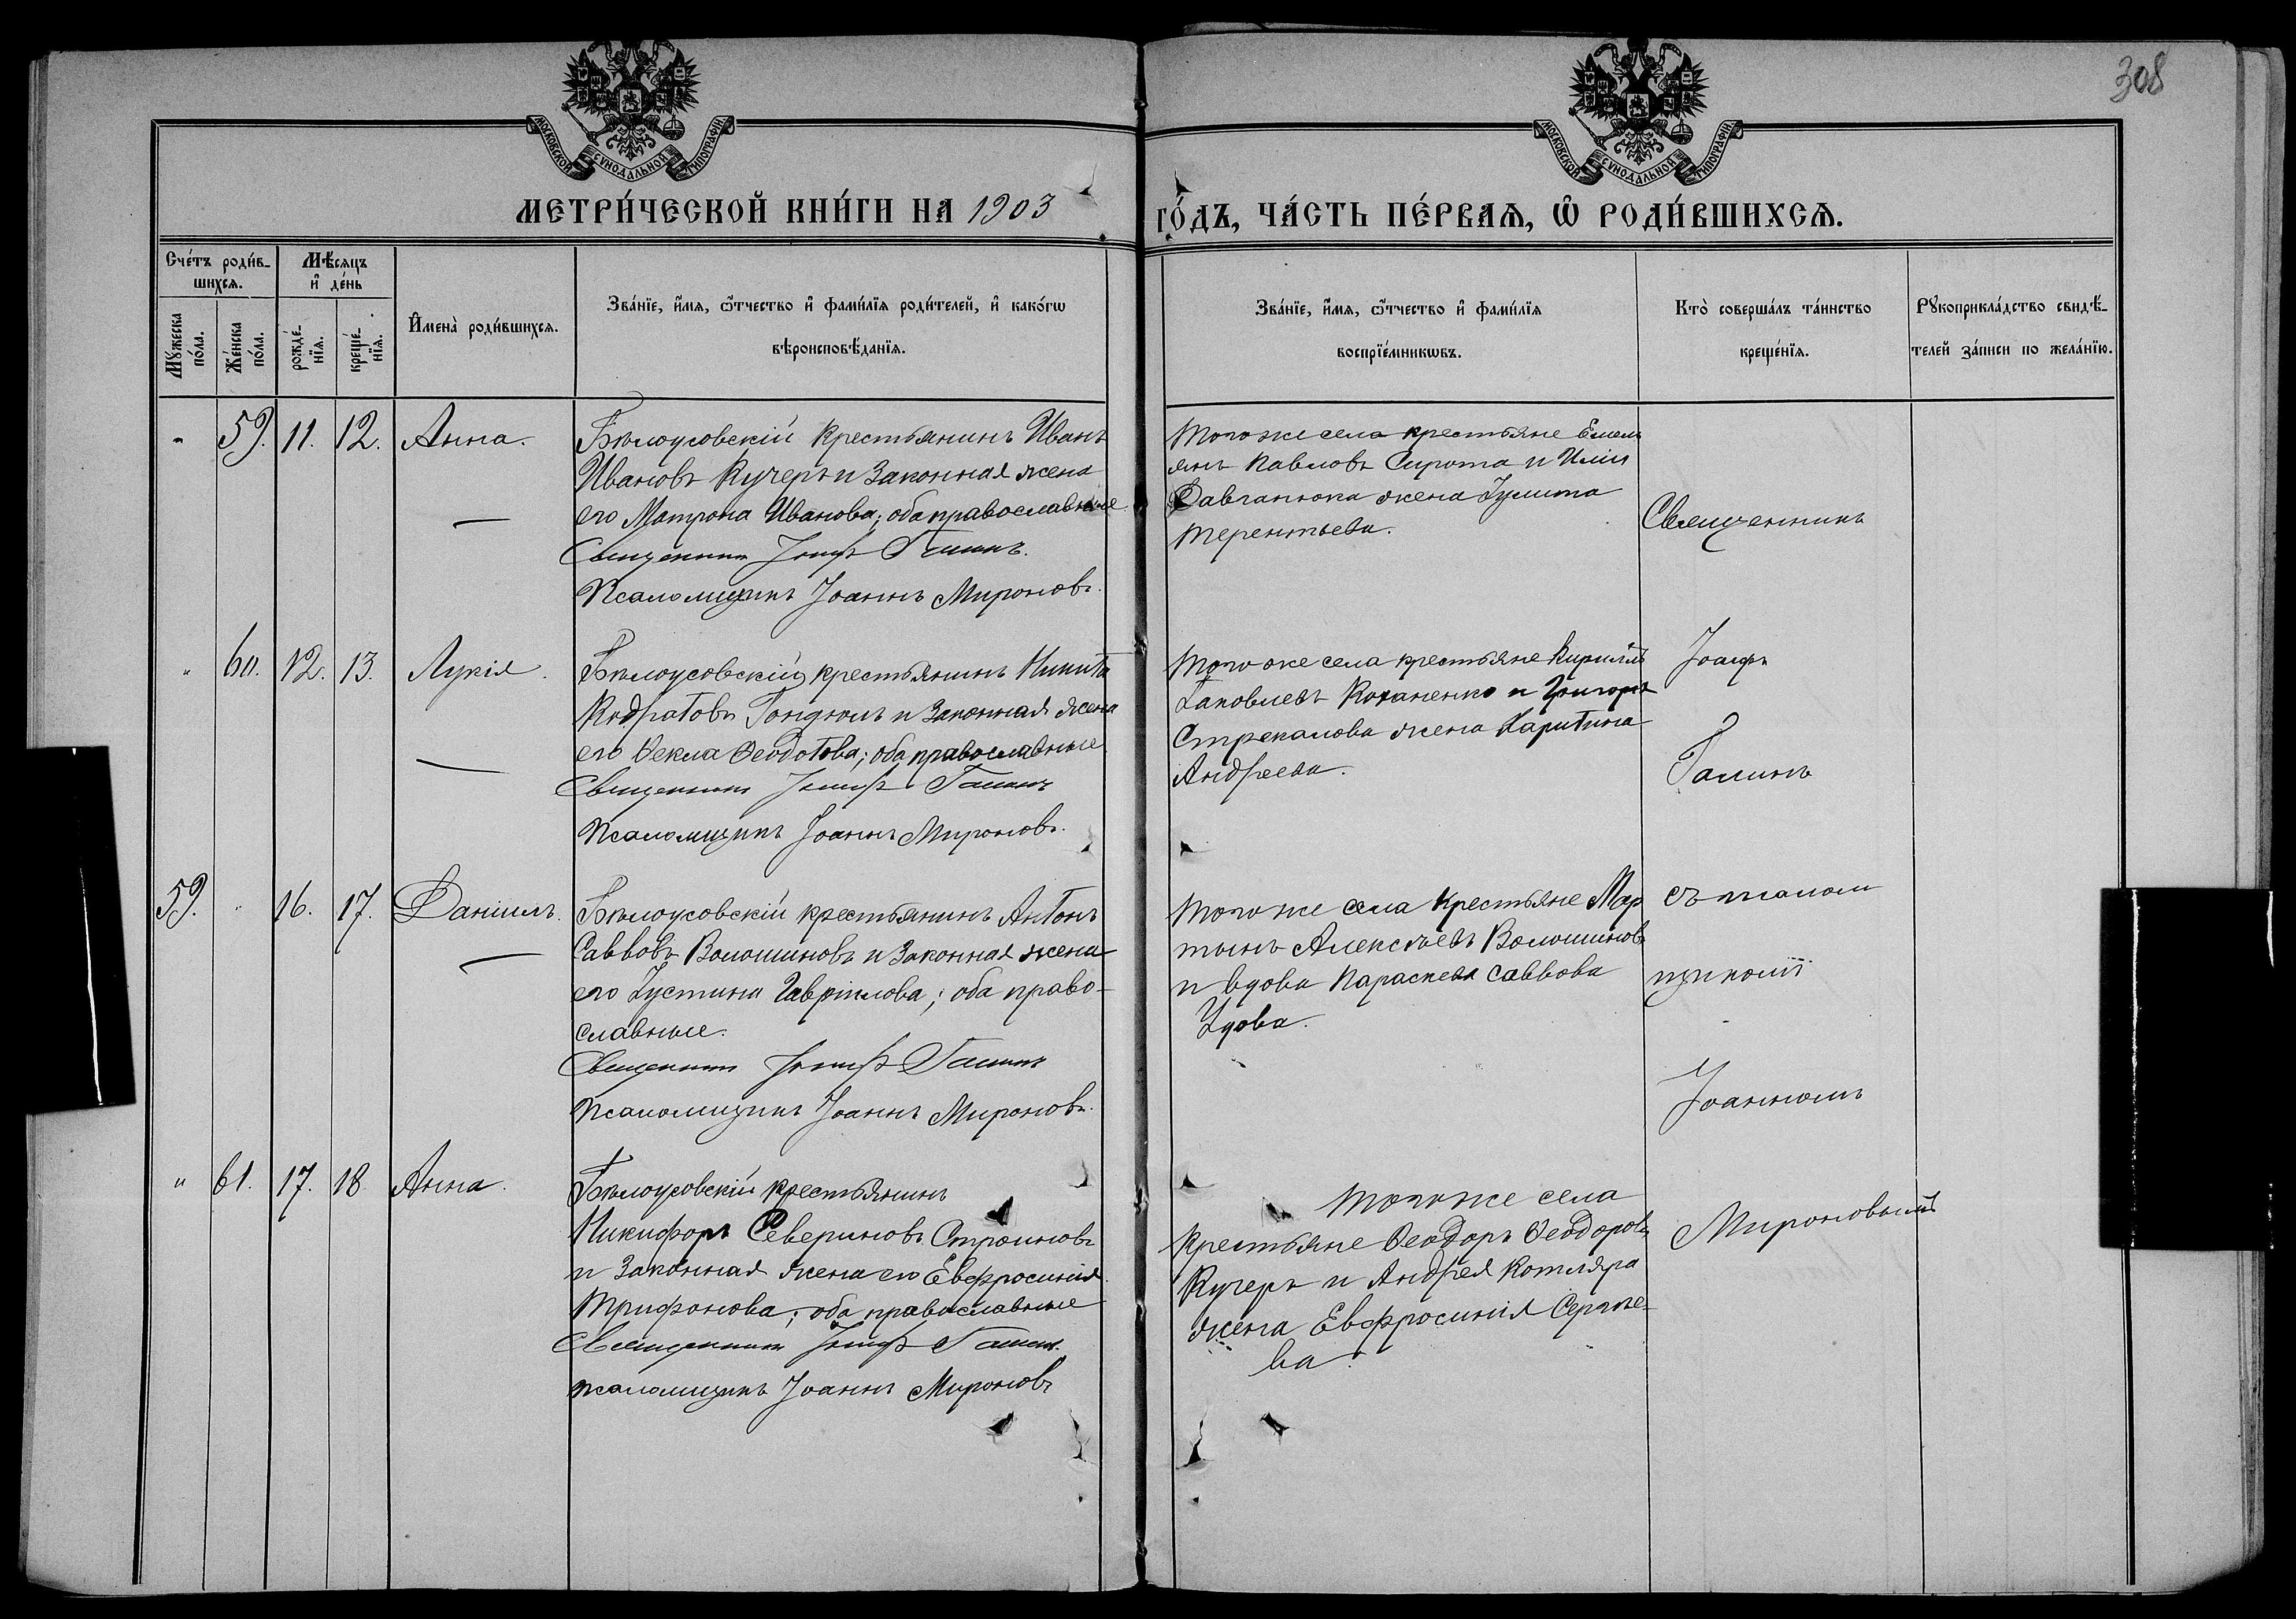 308
МОСКОВСКОЙ СѴНОДАЛЬНОЙ ТИПОГРАФІИ
МОСКОВСКОЙ СѴНОДАЛЬНОЙ ТИПОГРАФІИ
МЕТРИ́ЧЕСКОЙ КНИ́ГИ НА 1903
ГО́ДЪ, ЧА́СТЬ ПЕ́РВАѦ, Ѡ҆ РОДИ́ВШИХСѦ.
Сче́тъ роди́в-
шихсѧ.
Мꙋжеска по́ла.
Же́нска по́ла.
Мѣ́сѧцъ
и҆ де́нь
рожде́-
нїѧ.
креще́-
нїѧ.
И҆мена̀ роди́вшихсѧ.
Зва́нїе, и҆́мѧ, ѻ҆́тчество и҆ фами́лїѧ роди́телей, и҆ како́гѡ
вѣроисповѣ́данїѧ.
Зва́нїе, и҆́мѧ, ѻ҆́тчество и҆ фами́лїѧ
воспрїе́мникѡвъ.
Кто̀ соверша́лъ та́инство
креще́нїѧ.
Рꙋкоприкла́дство свидѣ́-
телей за́писи по жела́нїю.
" 59. 11. 12. Анна.
Бѣлоусовскій крестьянинъ Иванъ
Ивановъ Кучеръ и законная жена
его Матрона Иванова; оба православные
Священникъ Іосифъ Галинъ.
Псаломщикъ Іоаннъ Мироновъ.
Того же села крестьяне Емель
янъ Павловъ Сирота и Иліи
Савчанюка жена Іулита
Терентьева.
Священникъ
" 60. 12. 13. Лукія.
Бѣлоусовскій крестьянинъ Никита
Кодратовъ Гондюлъ и законная жена
его Ѳекла Ѳеодотова; оба православные
Священникъ Іосифъ Галинъ
Псаломщикъ Іоаннъ Мироновъ.
Того же села крестьяне Кириллъ
Іаковлевъ Коханенко и Григорія
Стрекалова жена Харитина
Андреева.
Іосифъ
Галинъ
59. " 16. 17. Даніилъ.
Бѣлоусовскій крестьянинъ Антонъ
Саввовъ Волошиновъ и законная жена
его Іустина Гавріилова; оба право-
славные.
Священникъ Іосифъ Галинъ
Псаломщикъ Іоаннъ Мироновъ.
Того же села крестьяне Мар
тынъ Алексѣевъ Волошиновъ
и вдова Параскева Саввова
съ псалом
щикомъ
Іоанномъ
" 61. 17. 18 Анна.
Бѣлоусовскій крестьянинъ
Никифоръ Севериновъ Строиновъ
и законная жена его Евфросинія
Трифонова; оба православные
Священникъ Іосифъ Галинъ.
псаломщикъ Іоаннъ Мироновъ
Того же села
крестьяне Ѳеодоръ Ѳеодоровъ
Кучеръ и Андрея Котляра
жена Евфросинія Сергѣе-
ва.
Мироновымъ